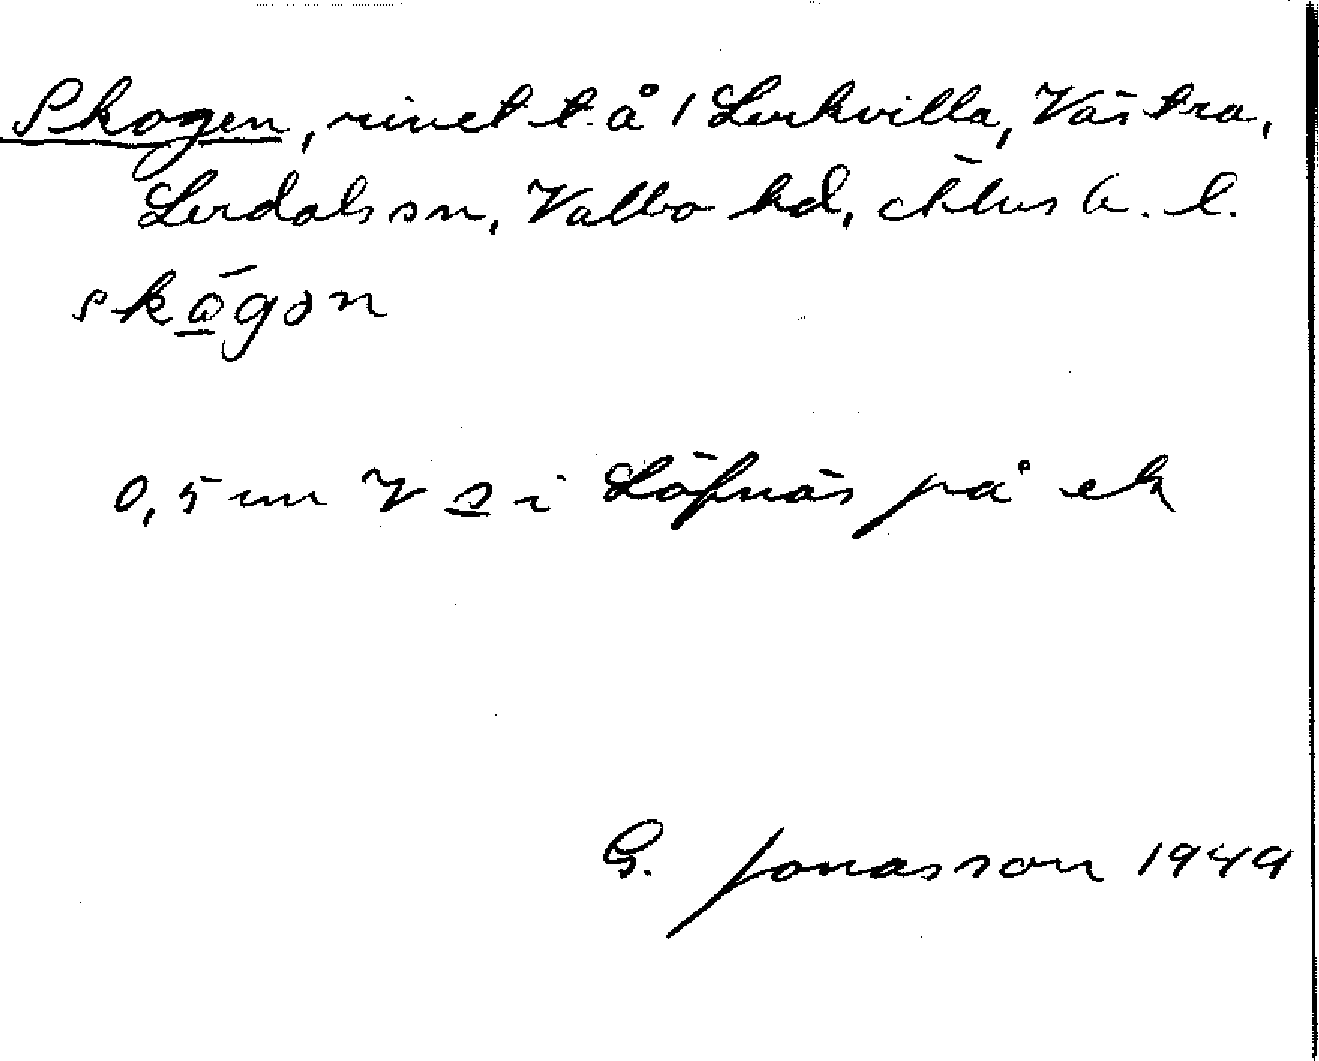 Skogen, rivet t. å 1 Lerkvilla, Västra,
Lerdals sn, Valbo hd, Älvsb. l.
skōgən
0,5 km V s i Löfnäs på ek
G. Jonasson 1949